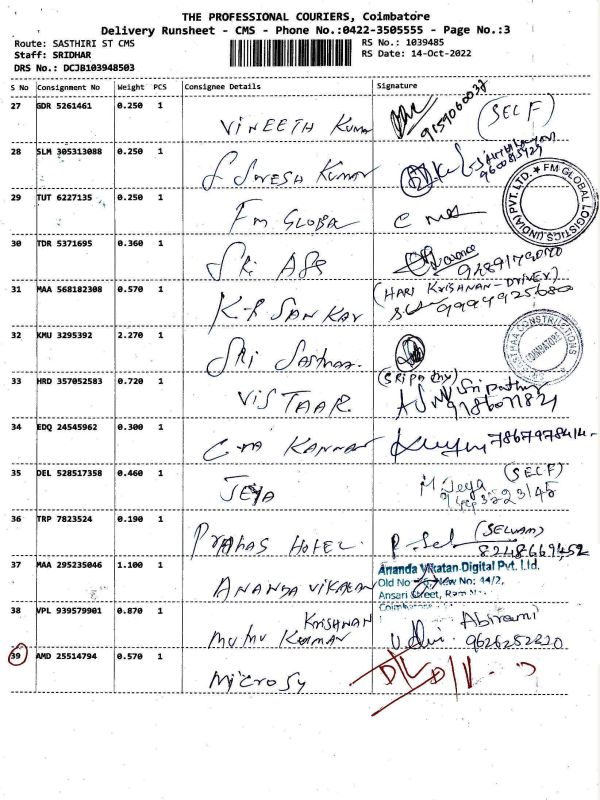 THE PROFESSIONAL COURIERS, Coimbatore
Delivery Runsheet - CMS - Phone No.:0422-3505555 - Page No.:3
Route: SASTHIRI ST CMS
Staff: SRIDHAR
DRS No.: DCJB103948503
RS No.: 1039485
RS Date: 14-Oct-2022
S No Consignment No Weight PCS Consignee Details Signature
27 GDR 5261461 0.250 1
VINEETH KUMA 9159060032 (SELF)
28 SLM 305313088 0.250 1
S SURESH KUMAR
29 TUT 6227135 0.250 1
FM GLOBAL
FM GLOBAL LOGISTICS (INDIA) PVT. LTD.
30 TDR 5371695 0.360 1
SRI
31 MAA 568182308 0.570 1
K R SANKAR (HARI KRISHNAN-DRIVER) 9994925680
32 KMU 3295392 2.270 1
SRI Sasthaa
CONSTRUCTIONS COIMBATORE
33 HRD 357052583 0.720 1
VISTAAR (Sripathy) Sripathy
34 EDQ 24545962 0.300 1
KANNAN 7867978414
35 DEL 528517358 0.460 1
JEYA M Jeya (SELF)
36 TRP 7823524 0.190 1
PRAHAS HOTEL P. Sel (SELVAM) 8248669452
37 MAA 295235046 1.100 1
ANANDA VIKATAN
Ananda Vikatan Digital Pvt. Ltd.
Old No New No: 44/2,
Ansari Street, Ram
Coimbatore
38 VPL 939579901 0.870 1
KRISHNAN
MUMU KUMAR Abirami 9626252220
39 AMD 25514794 0.570 1
MICROSY D/L